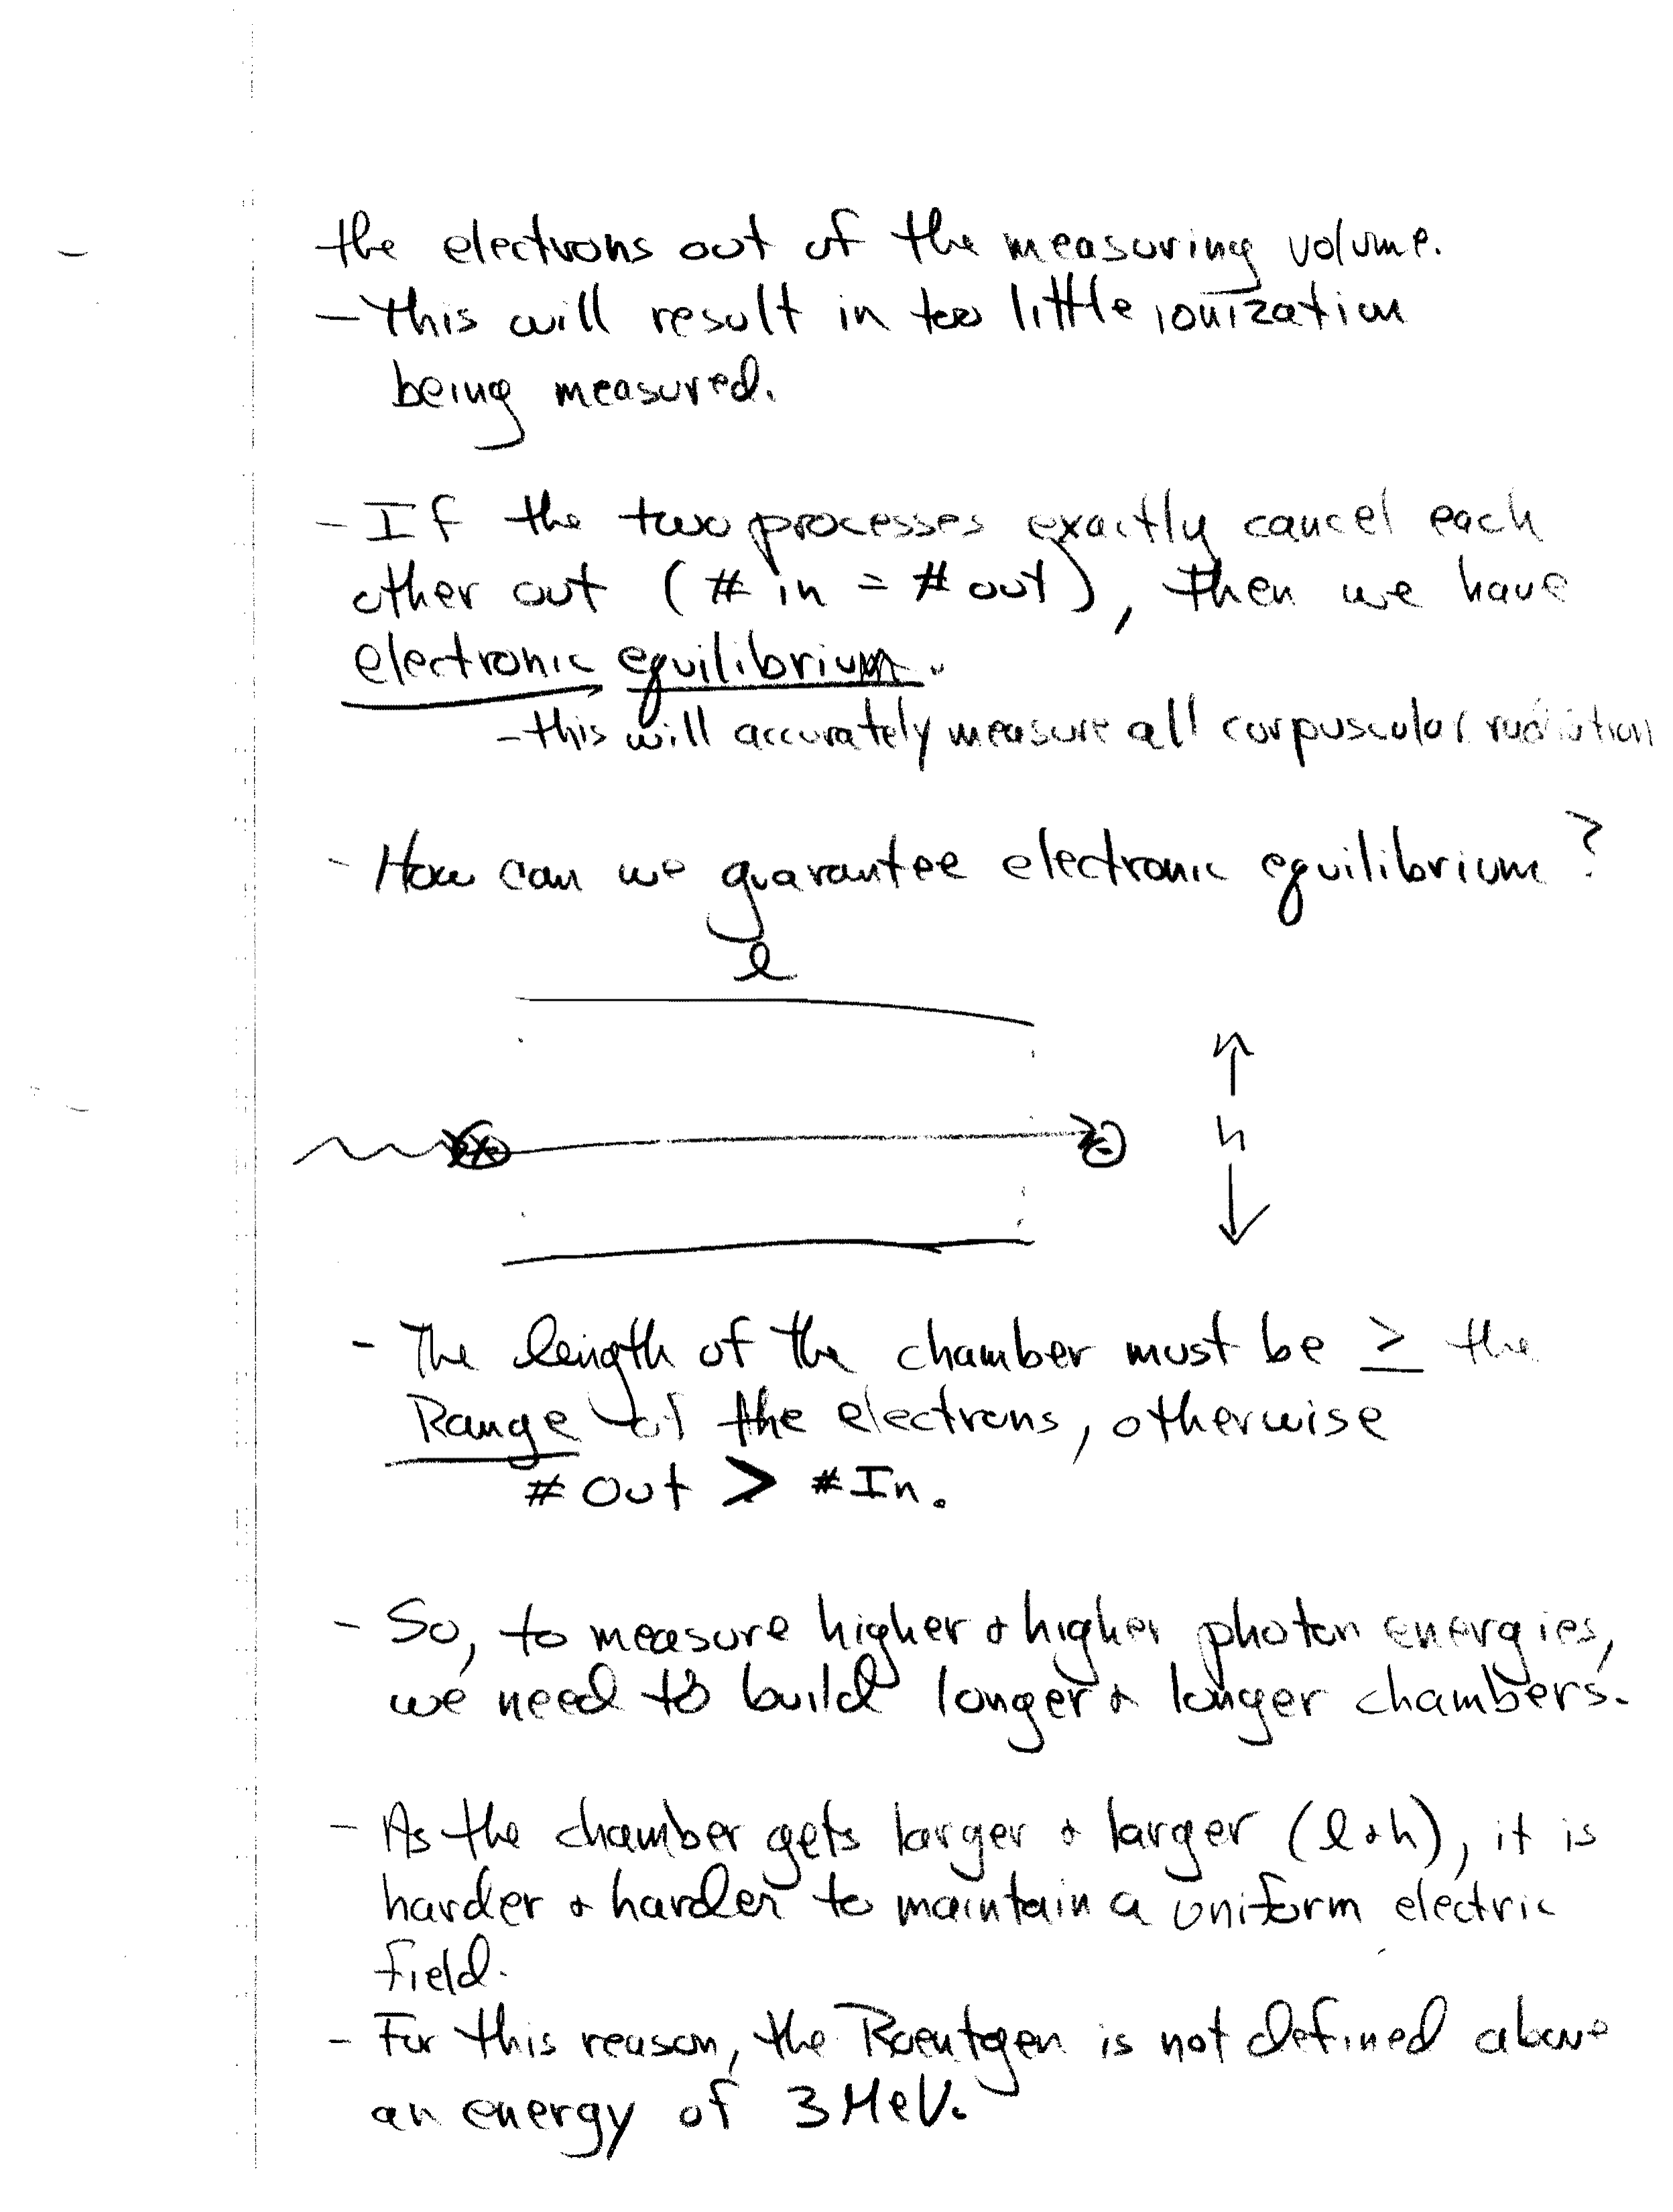 the electrons out of the measuring volume.
- this will result in too little ionization
being measured.
- If the two processes exactly cancel each
other out (# in = # out), then we have
electronic equilibrium.
- this will accurately measure all corpuscular radiation
- How can we guarantee electronic equilibrium?
l
h
- The length of the chamber must be ≥ the
Range of the electrons, otherwise
# Out > # In.
- So, to measure higher + higher photon energies,
we need to build longer + longer chambers.
- As the chamber gets larger + larger (l+h), it is
harder + harder to maintain a uniform electric
field.
- For this reason, the Roentgen is not defined above
an energy of 3 MeV.